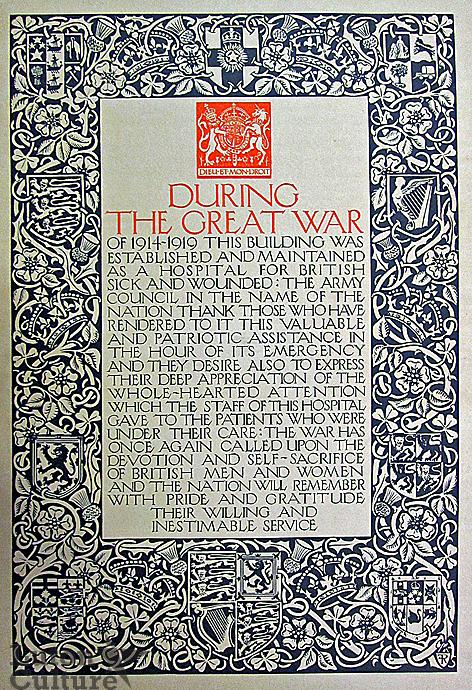 DIEU·ET·MON·DROIT
DURING
THE GREAT WAR
OF 1914-1919 THIS BUILDING WAS
ESTABLISHED AND MAINTAINED
AS A HOSPITAL FOR BRITISH
SICK AND WOUNDED : THE ARMY
COUNCIL IN THE NAME OF THE
NATION THANK THOSE WHO HAVE
RENDERED TO IT THIS VALUABLE
AND PATRIOTIC ASSISTANCE IN
THE HOUR OF ITS EMERGENCY
AND THEY DESIRE ALSO TO EXPRESS
THEIR DEEP APPRECIATION OF THE
WHOLE-HEARTED ATTENTION
WHICH THE STAFF OF THIS HOSPITAL
GAVE TO THE PATIENTS WHO WERE
UNDER THEIR CARE : THE WAR HAS
ONCE AGAIN CALLED UPON THE
DEVOTION AND SELF-SACRIFICE
OF BRITISH MEN AND WOMEN
AND THE NATION WILL REMEMBER
WITH PRIDE AND GRATITUDE
THEIR WILLING AND
INESTIMABLE SERVICE
Culture